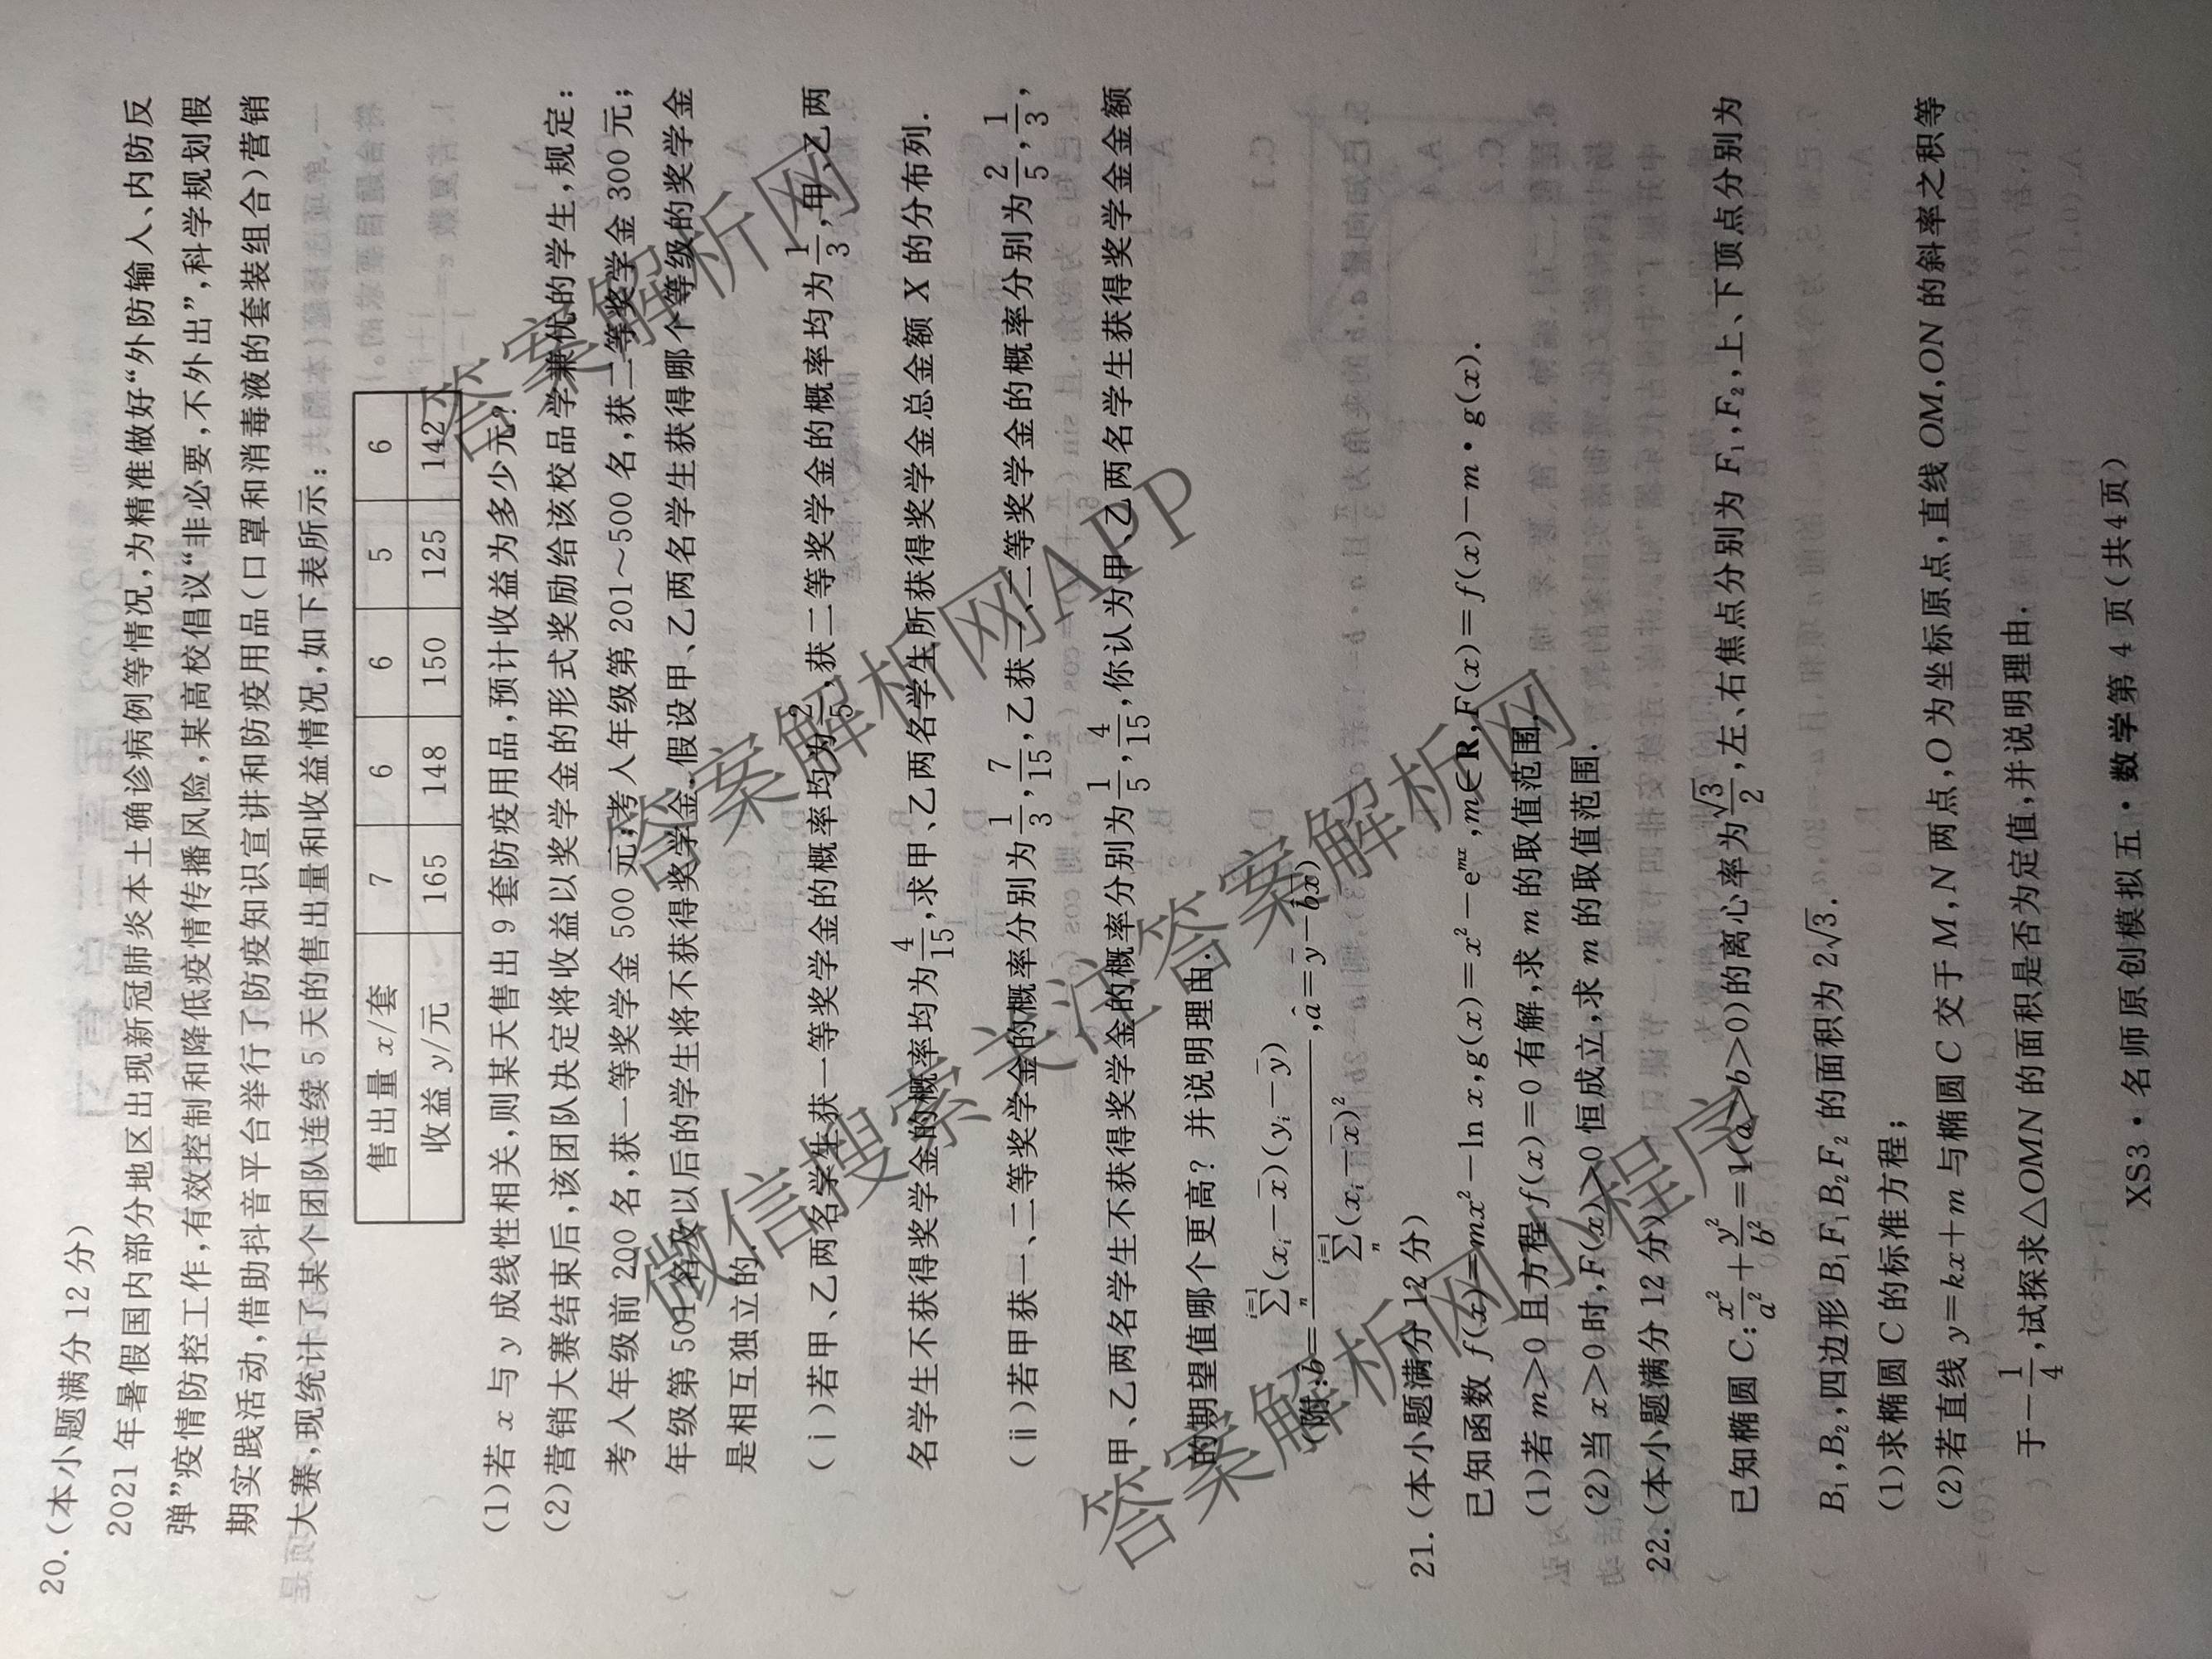 20.(本小题满分 12 分)
2021 年暑假国内部分地区出现新冠肺炎本土确诊病例等情况,为精准做好“外防输入、内防反
弹”疫情防控工作,有效控制和降低疫情传播风险,某高校倡议“非必要,不外出”,科学规划假
期实践活动,借助抖音平台举行了防疫知识宣讲和防疫用品(口罩和消毒液的套装组合)营销
大赛,现统计了某个团队连续 5 天的售出量和收益情况,如下表所示:
售出量 x/套 7 6 6 5 6
收益 y/元 165 148 150 125 142
(1)若 x 与 y 成线性相关,则某天售出 9 套防疫用品,预计收益为多少元?
(2)营销大赛结束后,该团队决定将收益以奖学金的形式奖励给该校品学兼优的学生,规定:
考入年级前 200 名,获一等奖学金 500 元;考入年级第 201～500 名,获二等奖学金 300 元;
年级第 501 名及以后的学生将不获得奖学金.假设甲、乙两名学生获得哪个等级的奖学金
是相互独立的.
(ⅰ)若甲、乙两名学生获一等奖学金的概率均为2/5,获二等奖学金的概率均为1/3,甲、乙两
名学生不获得奖学金的概率均为4/15,求甲、乙两名学生所获得奖学金总金额 X 的分布列.
(ⅱ)若甲获一、二等奖学金的概率分别为1/3,7/15,乙获一、二等奖学金的概率分别为2/5,1/3,
甲、乙两名学生不获得奖学金的概率分别为1/5,4/15,你认为甲、乙两名学生获得奖学金金额
的期望值哪个更高? 并说明理由.
(附:b̂=∑ⁿᵢ₌₁(xᵢ−x̄)(yᵢ−ȳ)/∑ⁿᵢ₌₁(xᵢ−x̄)²,â=ȳ−b̂x̄)
21.(本小题满分 12 分)
已知函数 f(x)=mx²−ln x,g(x)=x²−eᵐˣ,m∈R,F(x)=f(x)−m·g(x).
(1)若 m>0 且方程 f(x)=0 有解,求 m 的取值范围;
(2)当 x>0 时,F(x)≥0 恒成立,求 m 的取值范围.
22.(本小题满分 12 分)
已知椭圆 C:x²/a²+y²/b²=1(a>b>0)的离心率为√3/2,左、右焦点分别为 F₁,F₂,上、下顶点分别为
B₁,B₂,四边形 B₁F₁B₂F₂ 的面积为 2√3.
(1)求椭圆 C 的标准方程;
(2)若直线 y=kx+m 与椭圆 C 交于 M,N 两点,O 为坐标原点,直线 OM,ON 的斜率之积等
于−1/4,试探求△OMN 的面积是否为定值,并说明理由.
XS3·名师原创模拟五·数学第 4 页(共 4 页)
答案解析网
答案解析网APP
微信搜索关注答案解析网
答案解析网小程序